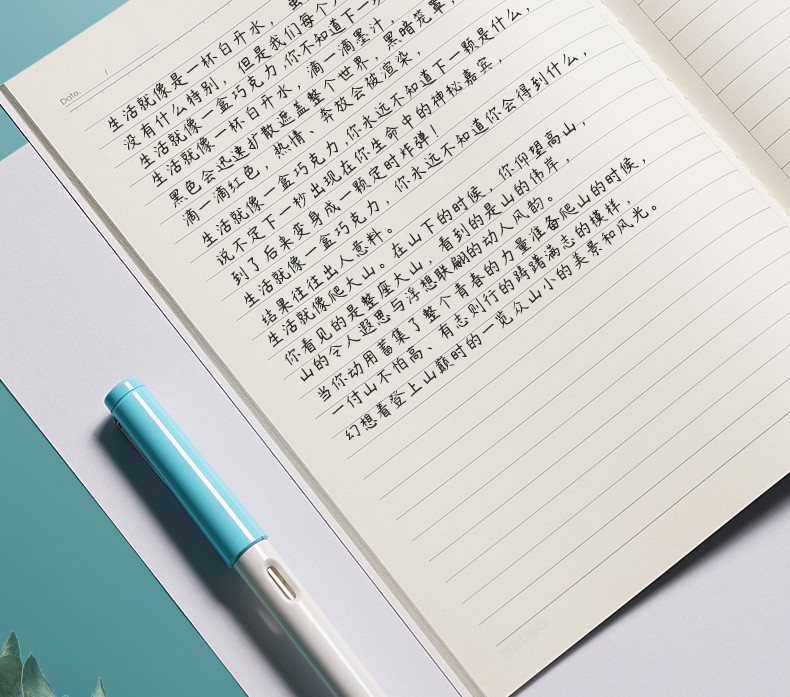 Date. /
生活就像是一杯白开水，虽
没有什么特别，但是我们每个人
生活就像一盒巧克力,你不知道下一块
生活就像一杯白开水，滴一滴墨汁，
黑色会迅速扩散遮盖整个世界，黑暗笼罩，
滴一滴红色，热情、奔放会被渲染，
生活就像一盒巧克力,你永远不知道下一颗是什么，
说不定下一秒出现在你生命中的神秘嘉宾，
到了后来变身成一颗定时炸弹！
生活就像一盒巧克力，你永远不知道你会得到什么，
结果往往出人意料。
生活就像爬大山。在山下的时候，你仰望高山，
你看见的是整座大山，看到的是山的伟岸，
山的令人遐思与浮想联翩的动人风韵。
当你动用蓄集了整个青春的力量准备爬山的时候，
一付山不怕高、有志则行的踌躇满志的模样，
幻想着登上山巅时的一览众山小的美景和风光。